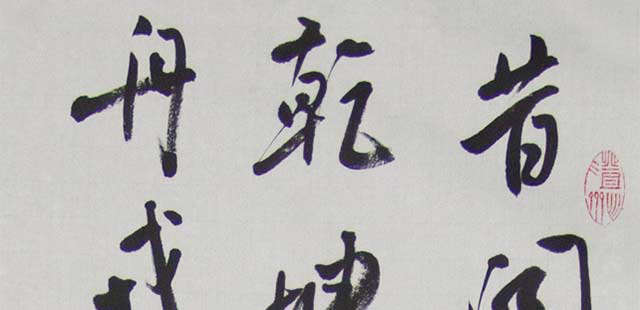 昔闻
乾坤
舟戎